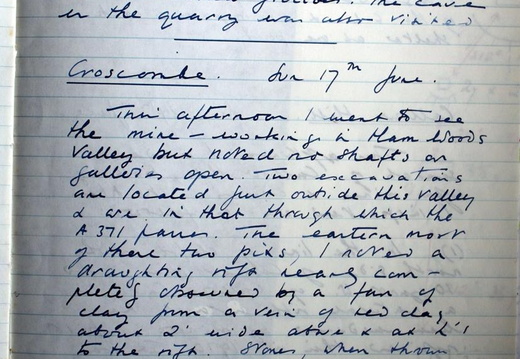 in the quarry was also visited
Croscombe. Sun 17th June.
This afternoon I went to see
the mine-workings in Ham Woods
Valley but noted no shafts or
galleries open. Two excavations
are located just outside this valley
& are in that through which the
A 371 passes. The eastern most
of these two pits I noted a
draughting rift nearly com-
pletely obscured by a fan of
clay from a vein of red clay
about 2' wide above & at
to the rift. Stones, when thrown